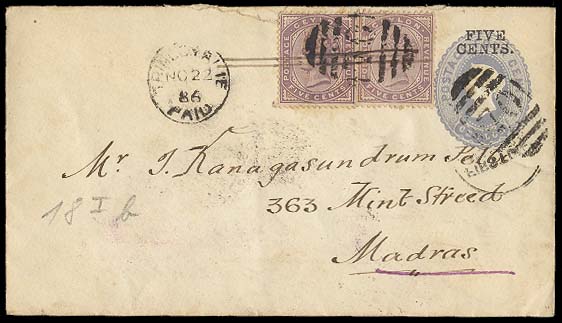 FIVE
CENTS.
POSTAGE CEYLON REVENUE
FIVE CENTS
FIVE CENTS
NO 22
86
PAID
Mr. T. Kanagasundrum
363 Mint Streed
Madras
18 I b